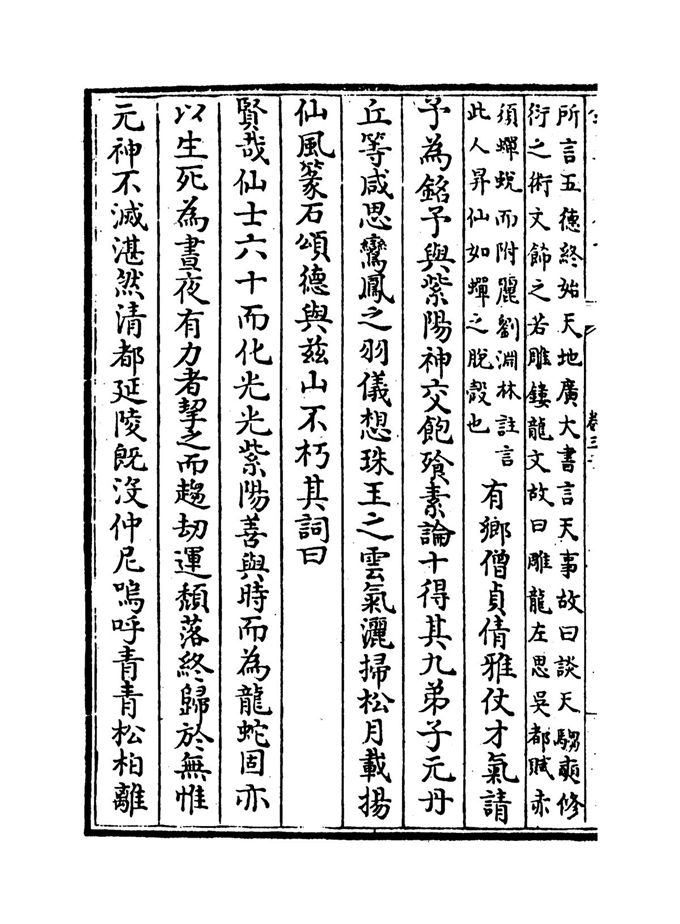 卷三十
所言五德終始天地廣大書言天事故曰談天騶奭修
衍之術文飾之若雕鏤龍文故曰雕龍左思吳都賦赤
須蟬蛻而附麗劉淵林註言
此人昇仙如蟬之脫殼也
有鄉僧貞倩雅仗才氣請
予為銘予與紫陽神交飽飡素論十得其九弟子元丹
丘等咸思鸞鳳之羽儀想珠玉之雲氣灑掃松月載揚
仙風篆石頌德與茲山不朽其詞曰
賢哉仙士六十而化光光紫陽善與時而為龍蛇固亦
以生死為晝夜有力者挈之而趨劫運頹落終歸於無惟
元神不滅湛然清都延陵既沒仲尼嗚呼青青松柏離